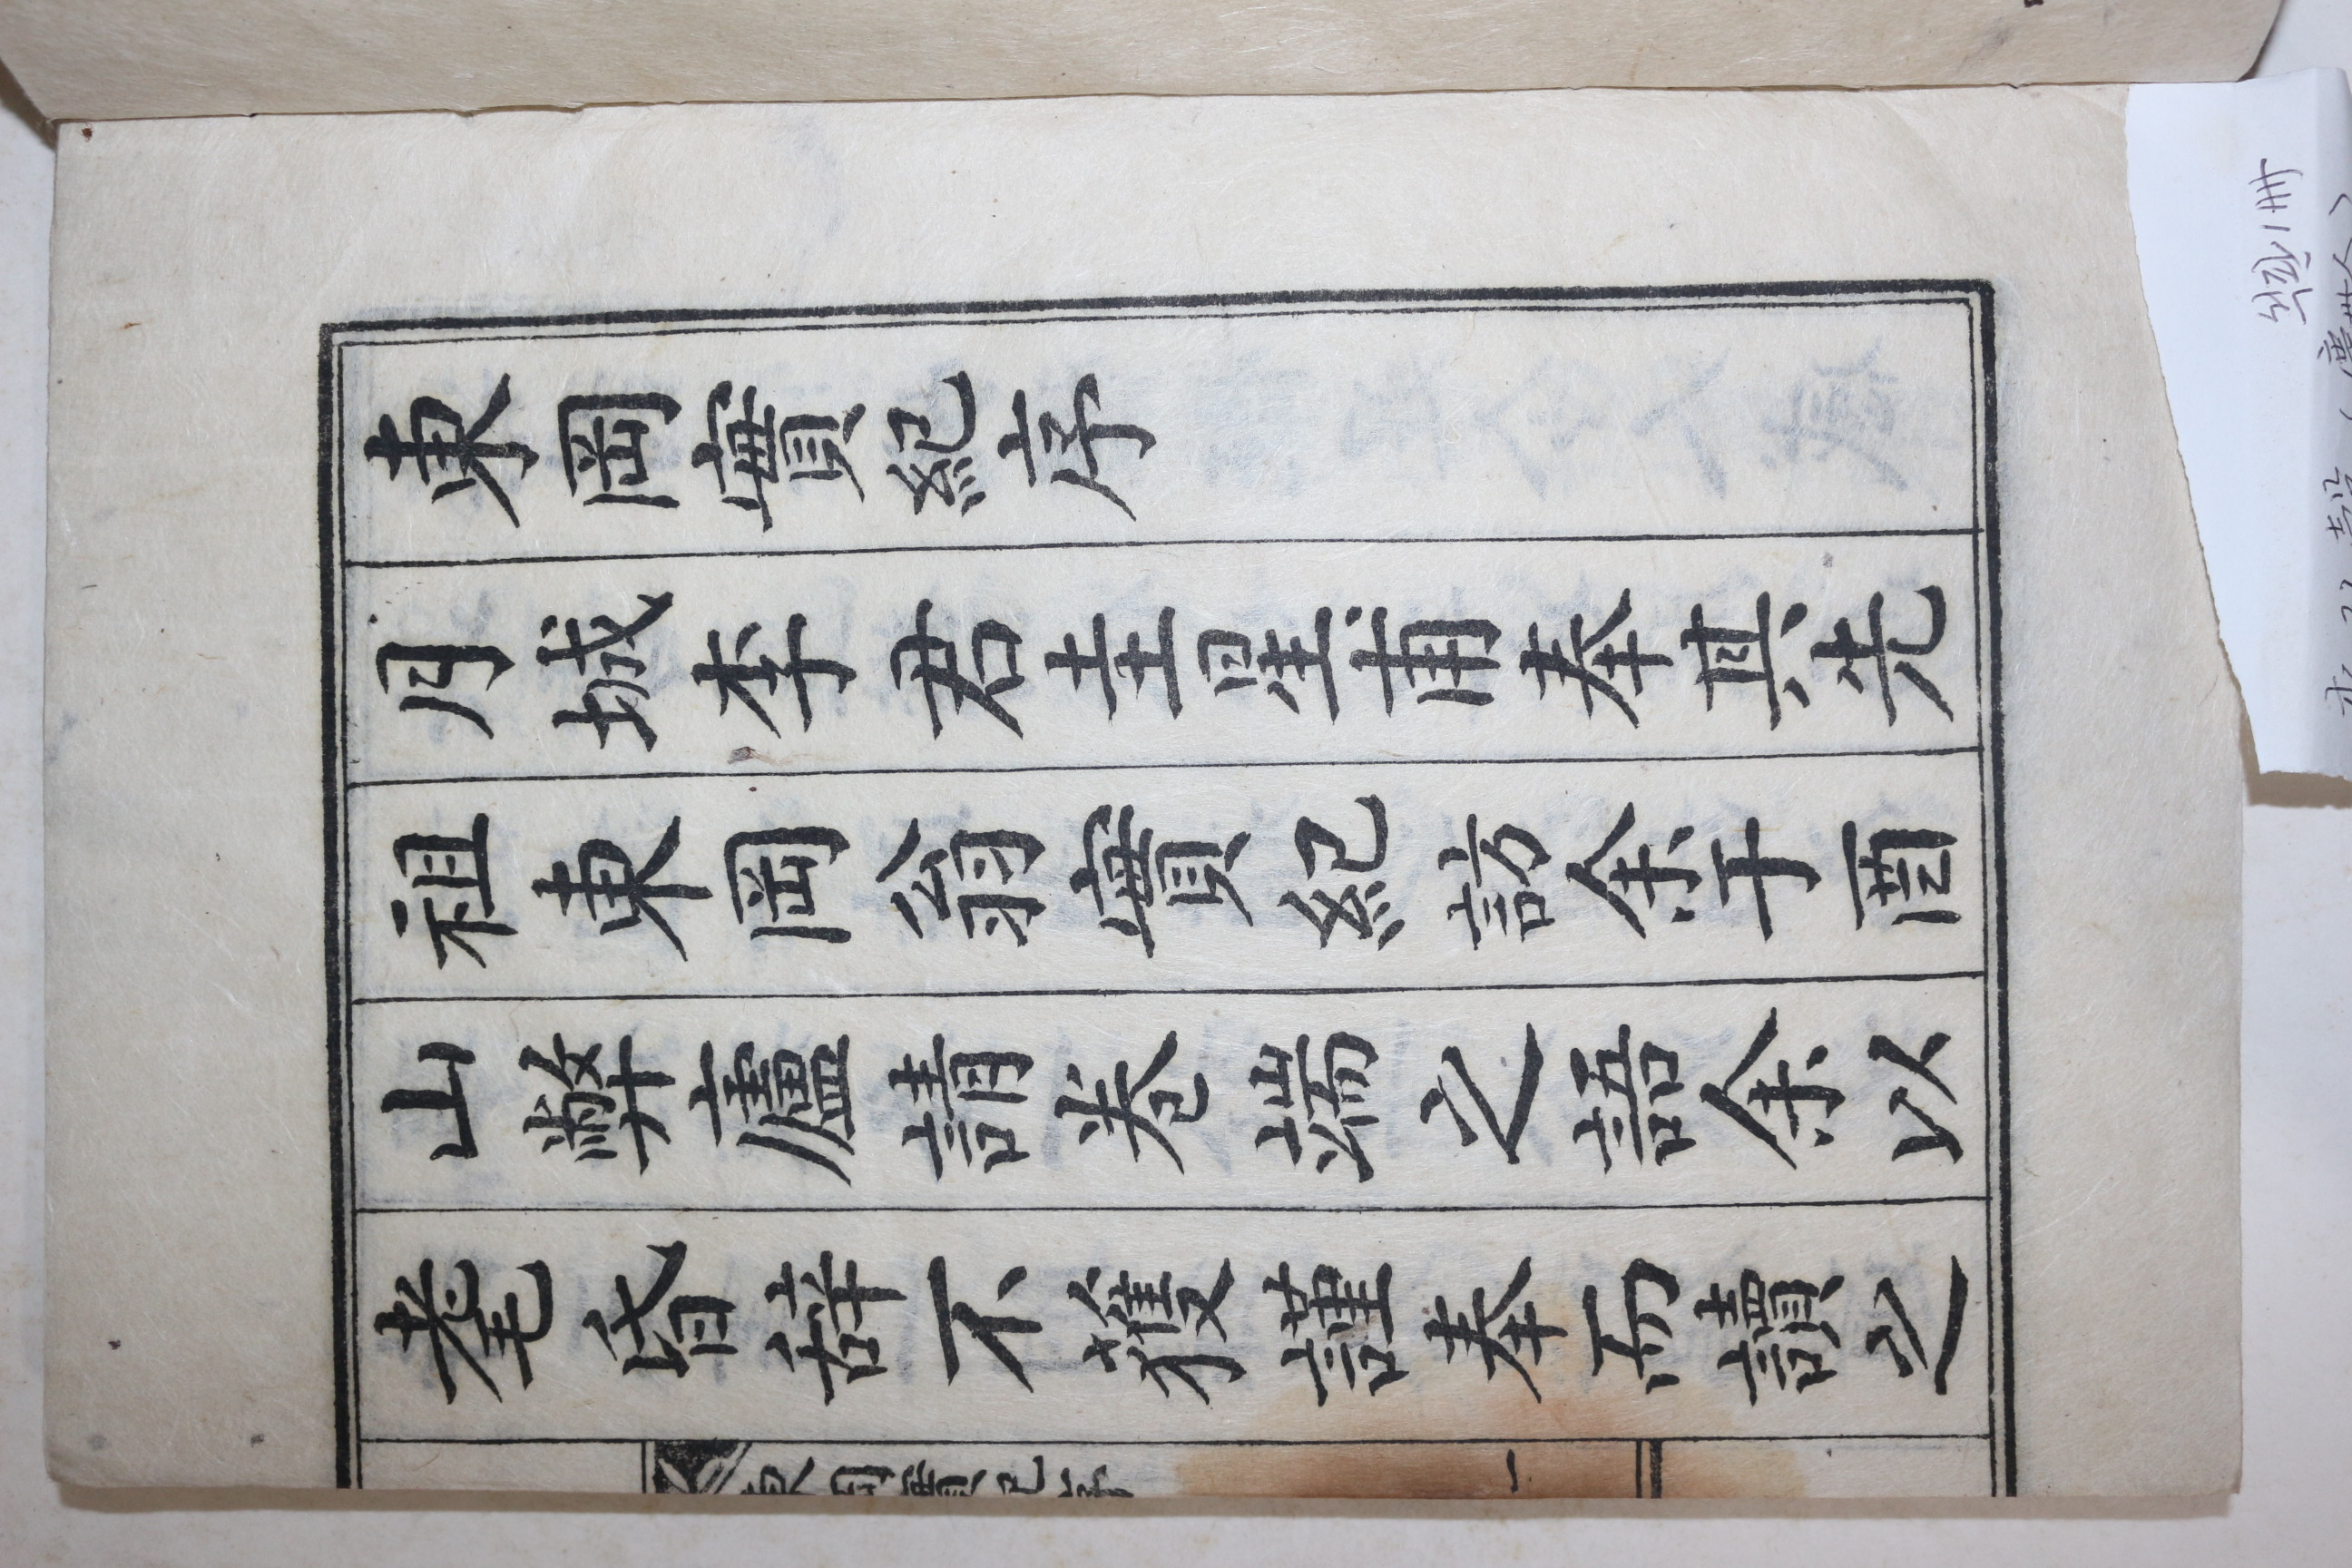 東岡實紀序
月城李君圭星甫奉其先
祖東岡翁實紀訪余于酉
山弊廬請卷端之語余以
耄昏辞不獲謹奉而讀之
一
석판1冊